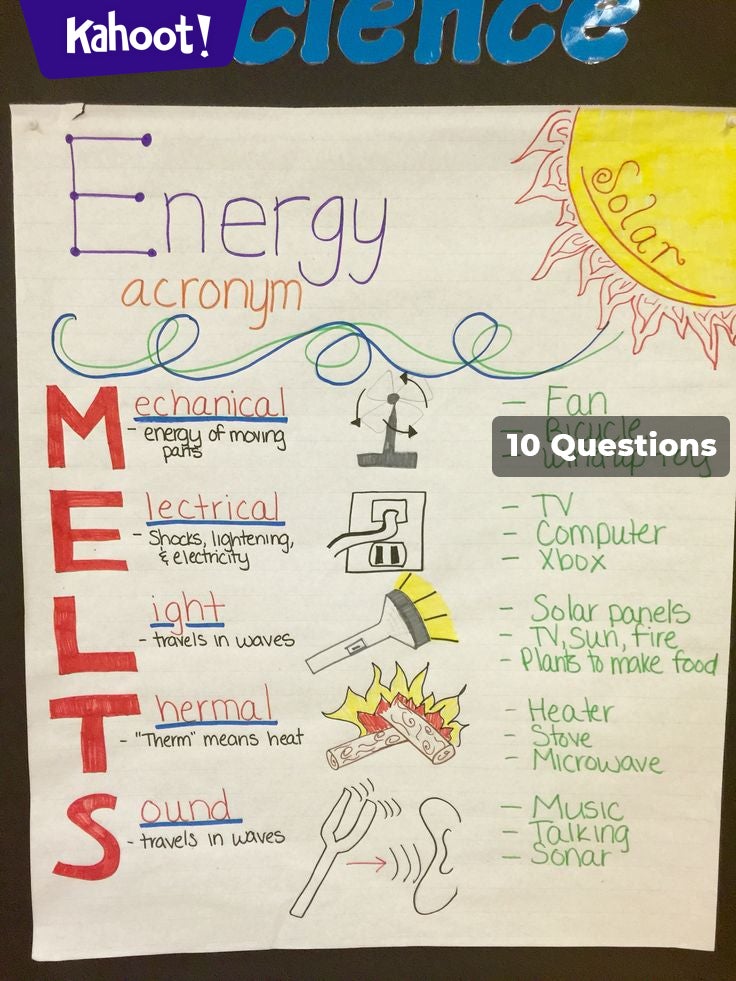 Kahoot!
cience
Energy
acronym
Solar
Mechanical
- energy of moving
parts
- Fan
- Bicycle
- Wind up Toy
10 Questions
Electrical
- Shocks, lightening,
& electricity
- TV
- Computer
- Xbox
Light
- travels in waves
- Solar panels
- TV, Sun, fire
- Plants to make food
Thermal
- "Therm" means heat
- Heater
- Stove
- Microwave
Sound
- travels in waves
- Music
- Talking
- Sonar